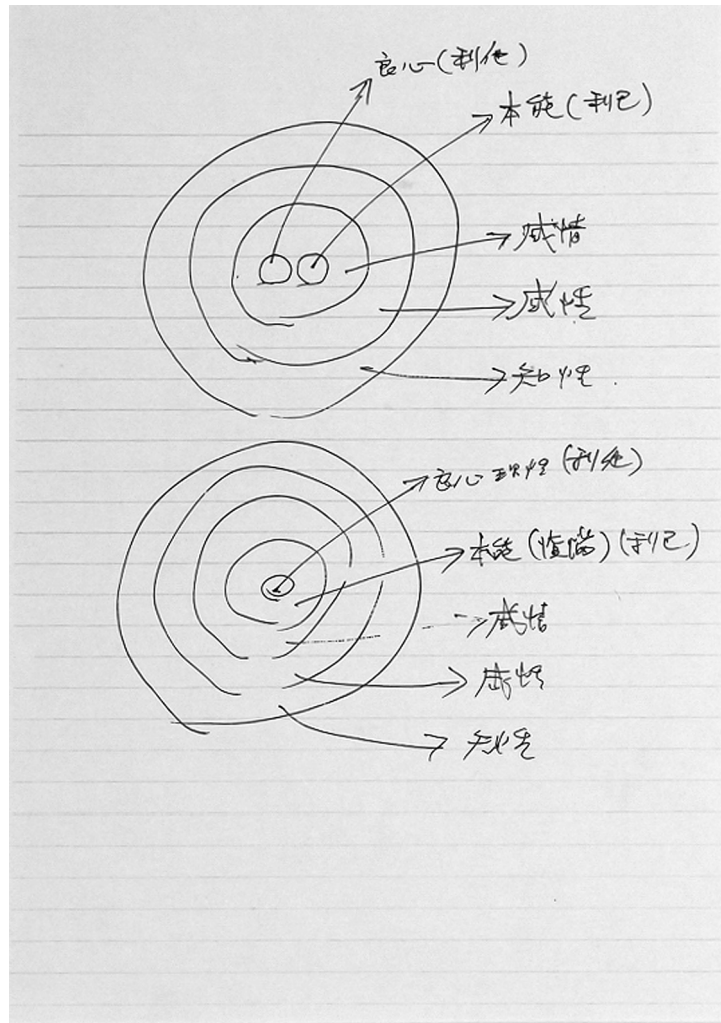 良心(利他)
本能(利己)
感情
感性
知性
良心 理性(利他)
本能(憶〓)(利己)
感情
感性
知性